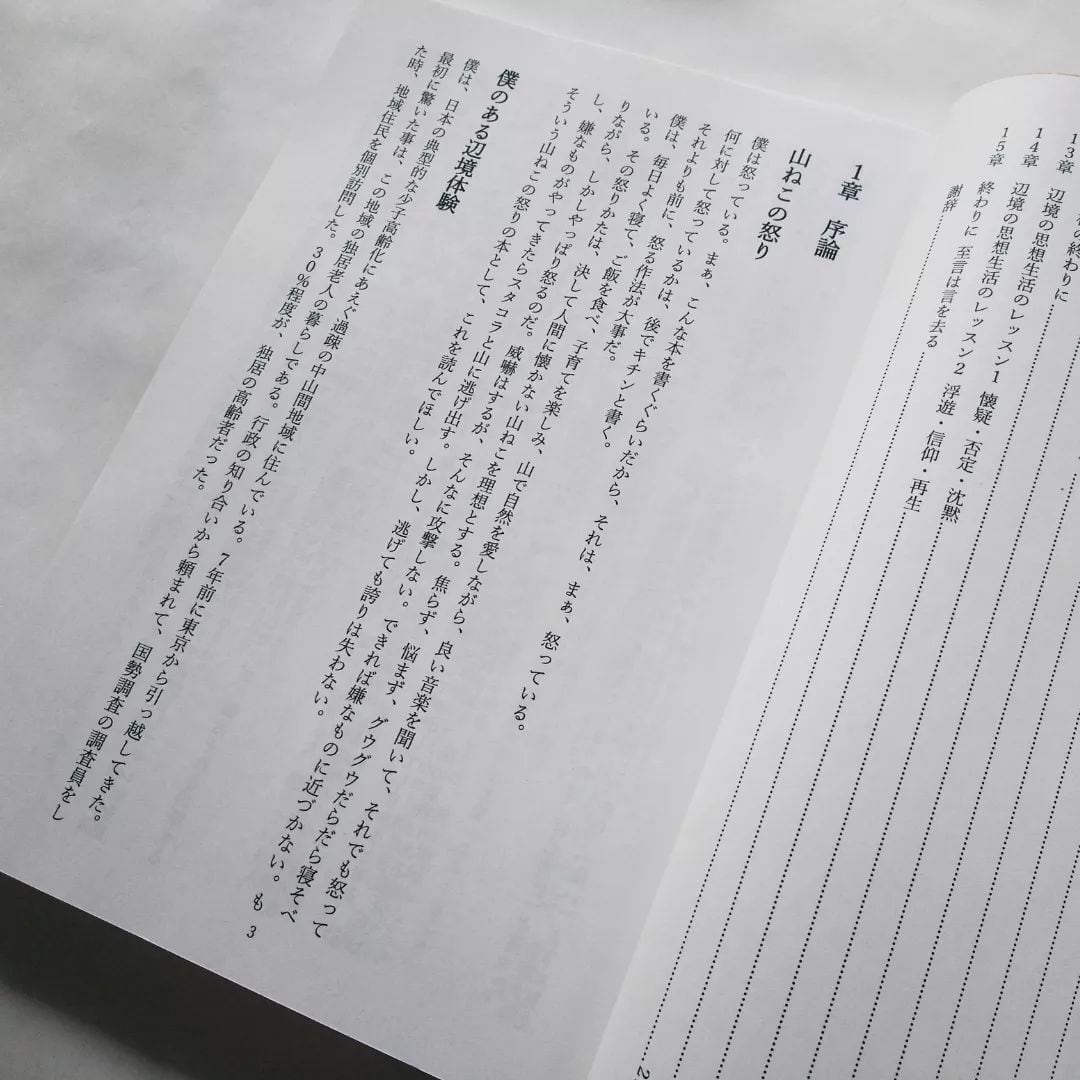 13章
の終わりに
14章 辺境の思想生活のレッスン1 懐疑・否定・沈黙
15章 辺境の思想生活のレッスン2 浮遊・信仰・再生
終わりに 至言は言を去る
謝辞
1章 序論
山ねこの怒り
僕は怒っている。まぁ、こんな本を書くぐらいだから、それは、まぁ、怒っている。
何に対して怒っているかは、後でキチンと書く。
それよりも前に、怒る作法が大事だ。
僕は、毎日よく寝て、ご飯を食べ、子育てを楽しみ、山で自然を愛しながら、良い音楽を聞いて、それでも怒って
いる。その怒りかたは、決して人間に懐かない山ねこを理想とする。焦らず、悩まず、グウグウだらだら寝そべ
りながら、しかしやっぱり怒るのだ。威嚇はするが、そんなに攻撃しない。できれば嫌なものに近づかない。も
し、嫌なものがやってきたらスタコラと山に逃げ出す。しかし、逃げても誇りは失わない。
そういう山ねこの怒りの本として、これを読んでほしい。
僕のある辺境体験
僕は、日本の典型的な少子高齢化にあえぐ過疎の中山間地域に住んでいる。7年前に東京から引っ越してきた。
最初に驚いた事は、この地域の独居老人の暮らしである。行政の知り合いから頼まれて、国勢調査の調査員をし
た時、地域住民を個別訪問した。30%程度が、独居の高齢者だった。
3